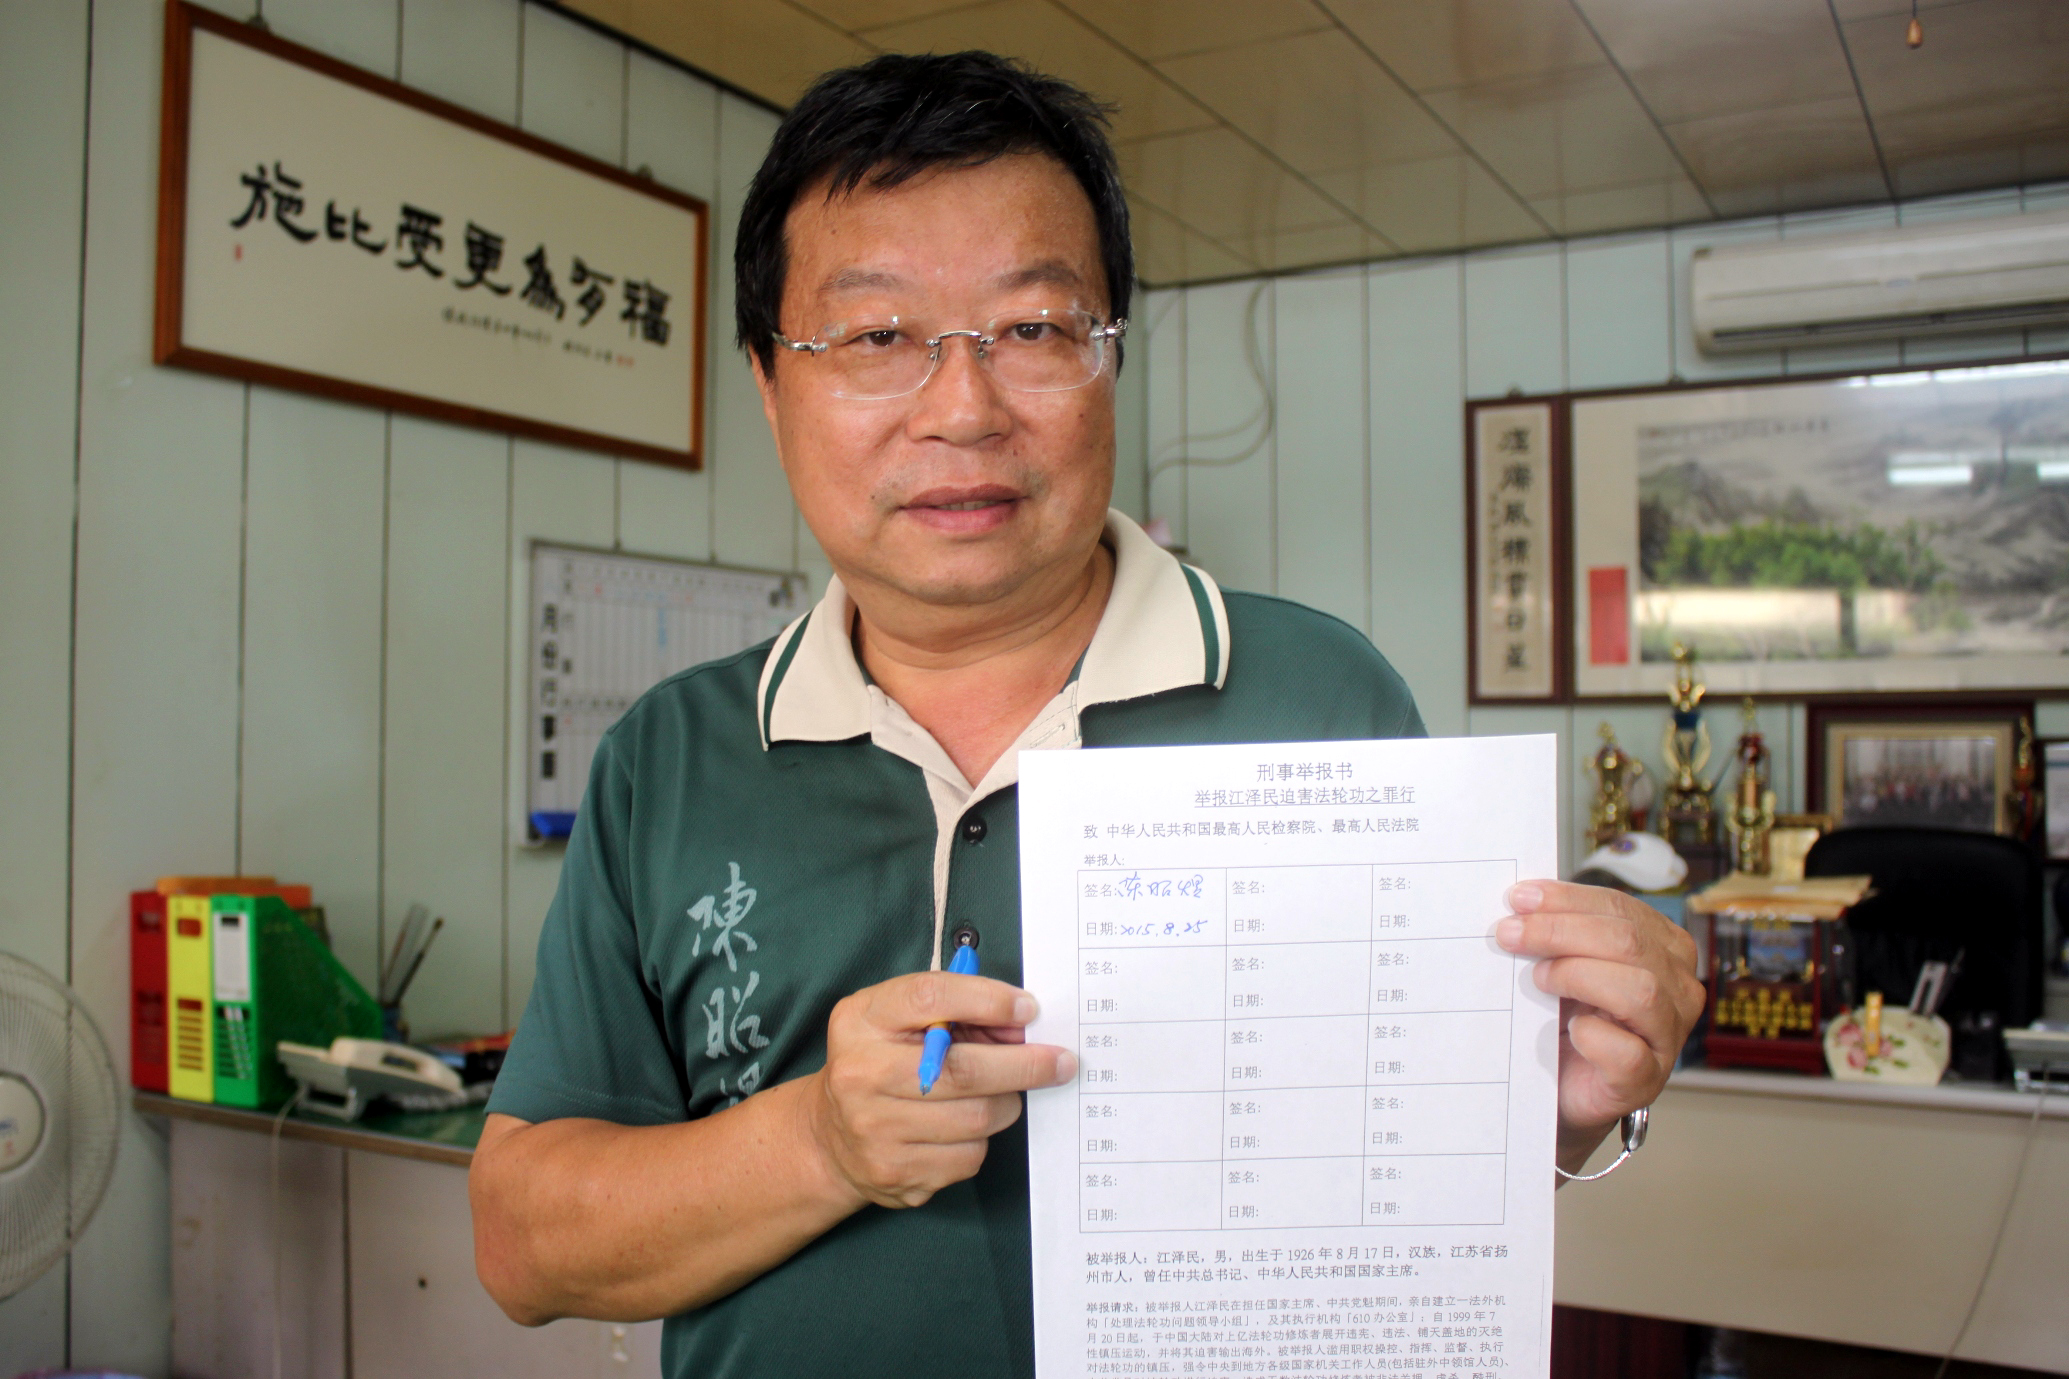 施比受更為有福
月份行事曆
陳昭煜
刑事举报书
举报江泽民迫害法轮功之罪行
致 中华人民共和国最高人民检察院、最高人民法院
举报人:
签名:陈昭煜 签名: 签名:
日期:2015.8.25 日期: 日期:
签名: 签名: 签名:
日期: 日期: 日期:
签名: 签名: 签名:
日期: 日期: 日期:
签名: 签名: 签名:
日期: 日期: 日期:
签名: 签名: 签名:
日期: 日期: 日期:
被举报人：江泽民，男，出生于 1926 年 8 月 17 日，汉族，江苏省扬
州市人，曾任中共总书记、中华人民共和国国家主席。
举报请求：被举报人江泽民在担任国家主席、中共党魁期间，亲自建立一法外机
构「处理法轮功问题领导小组」，及其执行机构「610 办公室」；自 1999 年 7
月 20 日起，于中国大陆对上亿法轮功修炼者展开违宪、违法、铺天盖地的灭绝
性镇压运动，并将其迫害输出海外。被举报人滥用职权操控、指挥、监督、执行
对法轮功的镇压，强令中央到地方各级国家机关工作人员(包括驻外中领馆人员)、